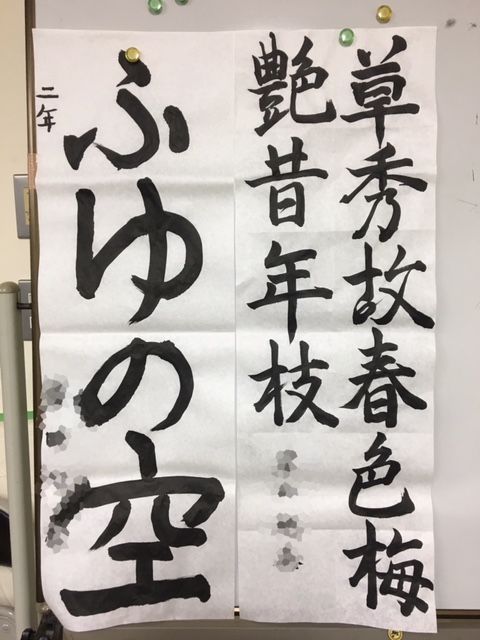 草秀故春色梅
艶昔年枝
ふゆの空
二年